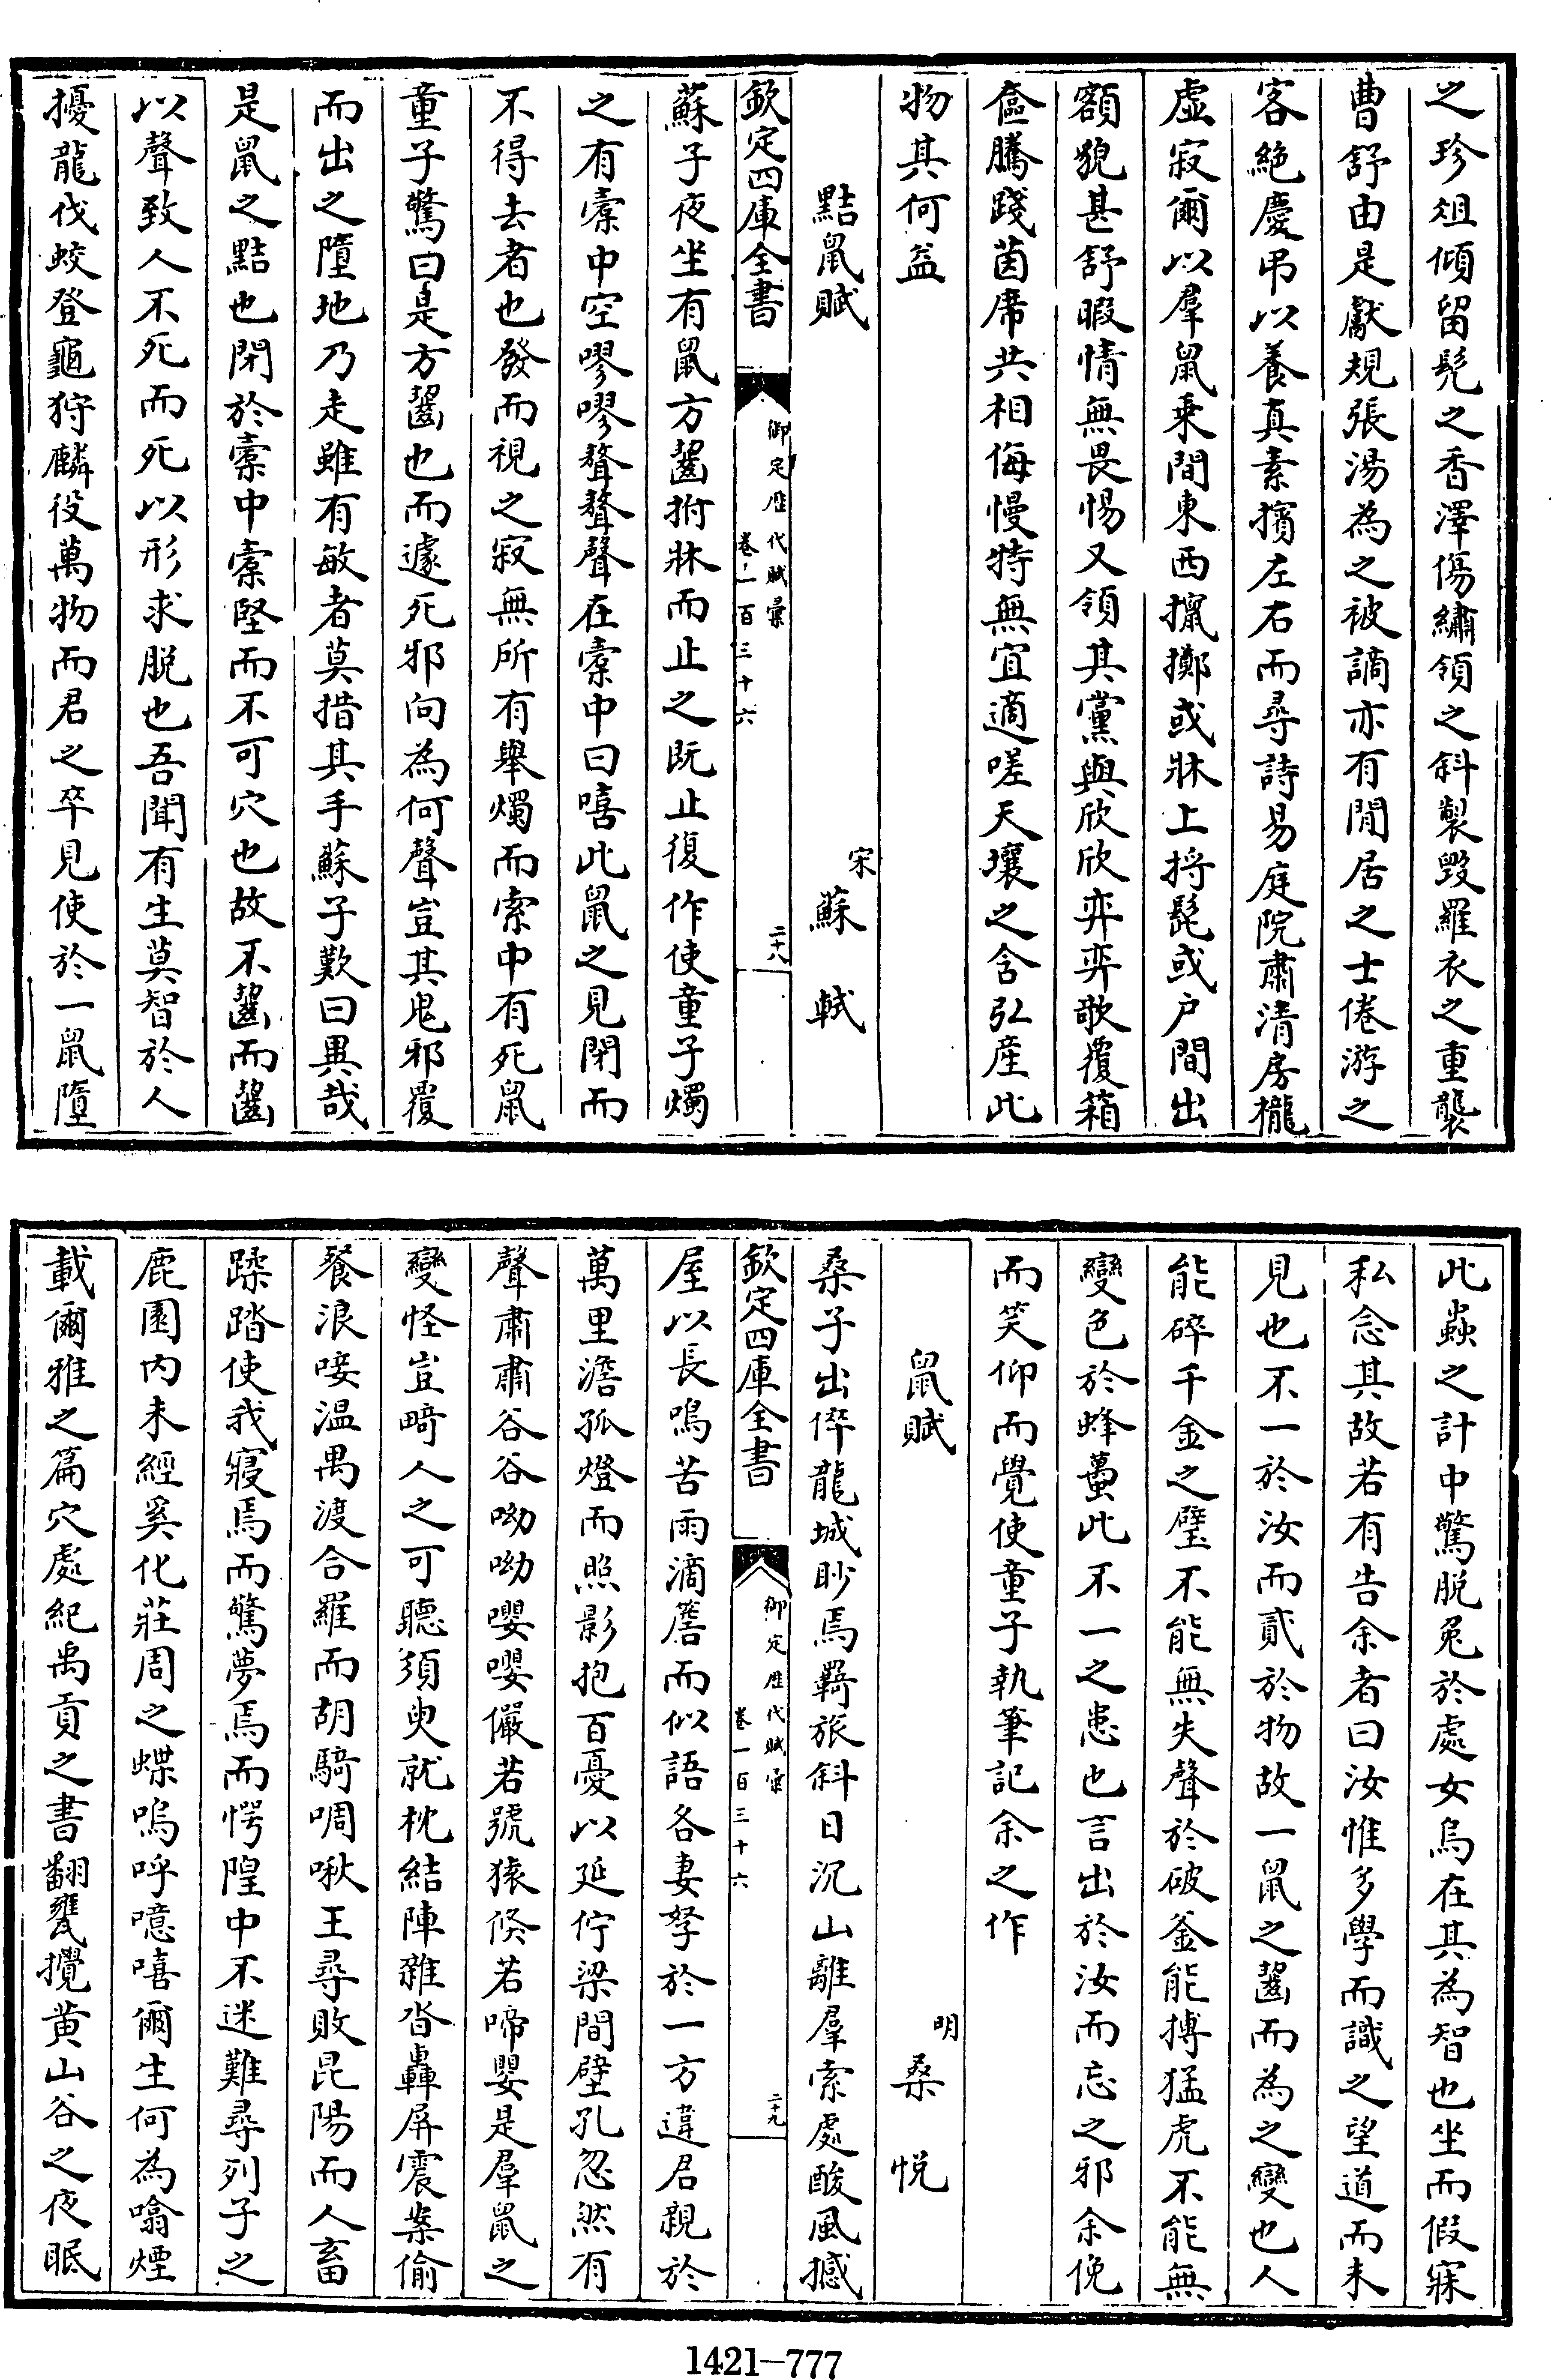 之珍俎傾留髡之香澤傷繡領之斜製毀羅衣之重襲
曹舒由是獻規張湯為之被謫亦有閒居之士倦游之
客絶慶弔以養真素擯左右而尋詩易庭院肅清房櫳
虛寂爾以羣鼠乗間東西攛擲或牀上捋髭或户間出
額貌甚舒暇情無畏惕又領其黨與欣欣弈弈歌覆箱
奩騰踐茵席共相侮慢特無宜適嗟天壤之含弘産此
物其何益
黠鼠賦
宋蘇軾
欽定四庫全書
御定歴代賦彙
卷一百三十六
二十八
蘇子夜坐有鼠方齧拊牀而止之既止復作使童子燭
之有橐中空嘐嘐聱聱聲在橐中曰嘻此鼠之見閉而
不得去者也發而視之寂無所有舉燭而索中有死鼠
童子驚曰是方齧也而遽死邪向為何聲豈其鬼邪覆
而出之墮地乃走雖有敏者莫措其手蘇子歎曰異哉
是鼠之黠也閉於橐中橐堅而不可穴也故不齧而齧
以聲致人不死而死以形求脱也吾聞有生莫智於人
擾龍伐蛟登龜狩麟役萬物而君之卒見使於一鼠墮
此蟲之計中驚脱兔於處女烏在其為智也坐而假寐
私念其故若有告余者曰汝惟多學而識之望道而未
見也不一於汝而貳於物故一鼠之齧而為之變也人
能碎千金之璧不能無失聲於破釜能搏猛虎不能無
變色於蜂蠆此不一之患也言出於汝而忘之邪余俛
而笑仰而覺使童子執筆記余之作
鼠賦
明桑悦
桑子出倅龍城眇焉羇旅斜日沉山離羣索處酸風撼
欽定四庫全書
御定歴代賦彙
卷一百三十六
二十九
屋以長鳴苦雨滴簷而似語各妻孥於一方違君親於
萬里澹孤燈而照影抱百憂以延佇梁間壁孔忽然有
聲肅肅谷谷呦呦嚶嚶儼若號猿倐若啼嬰是羣鼠之
變怪豈畸人之可聽須臾就枕結陣雜沓轟屏震案偷
餐浪唼温禺渡合羅而胡騎啁啾王尋敗昆陽而人畜
蹂踏使我寢焉而驚夢焉而愕隍中不迷難尋列子之
鹿園内未經奚化莊周之蝶嗚呼噫嘻爾生何為噏煙
載爾雅之篇穴處紀禹貢之書翻甕攪黄山谷之夜眠
1421-777